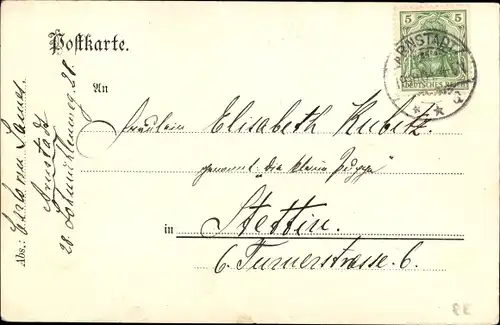 Postkarte.
5 5
DEUTSCHES REICH
ARNSTADT
An
Fräulein Elisabeth Kubitz
genannt "die kleine Puppe"
in Stettin.
6. Turnerstrasse. 6.
Abs.:
Arnstadt
28.